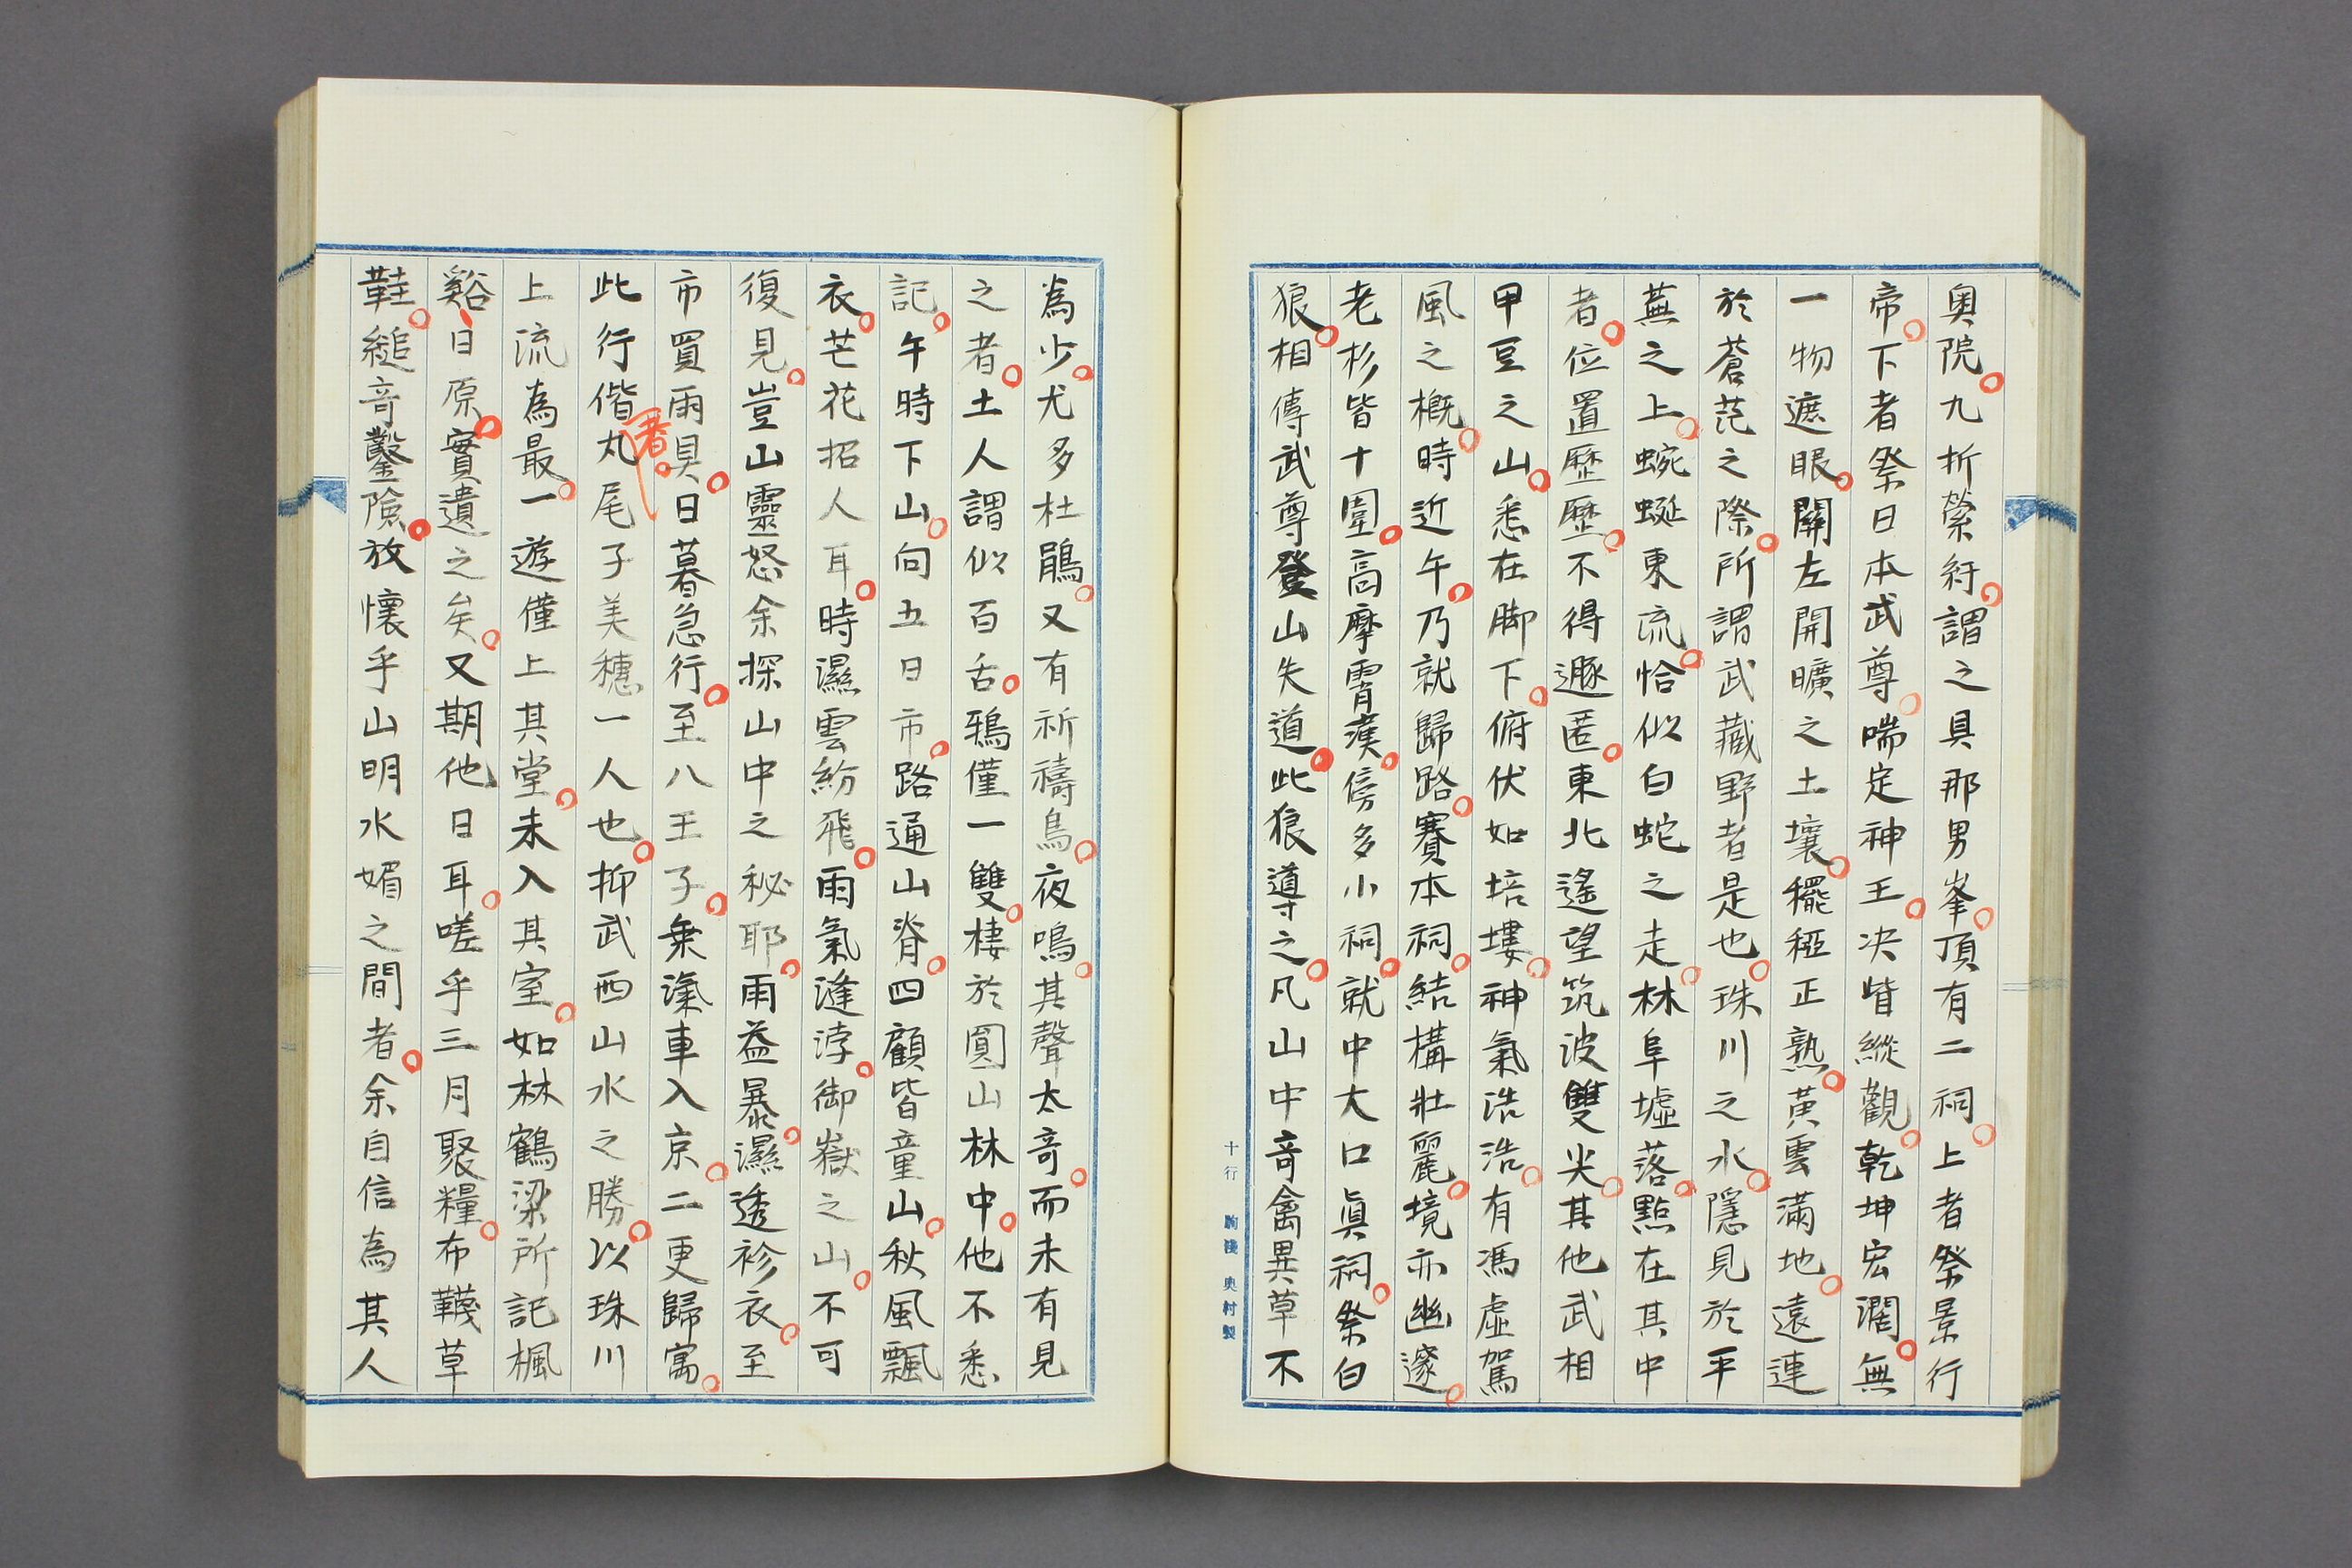 奧院。九折縈紆。謂之具那男峯。頂有二祠。上者祭景行
帝。下者祭日本武尊。喘定神王。决眥縱觀。乾坤宏濶。無
一物遮眼。關左開曠之土壤。䆉稏正熟。黃雲滿地。遠連
於蒼茫之際。所謂武藏野者是也。珠川之水。隱見於平
蕪之上。蜿蜒東流。恰似白蛇之走。林阜墟落。點在其中
者。位置歷歷。不得遯匿。東北遙望筑波雙尖。其他武相
甲豆之山。悉在脚下。俯伏如培塿。神氣浩浩。有馮虛駕
風之槪。時近午。乃就歸路。賽本祠。結構壯麗。境亦幽邃。
老杉皆十圍。高摩霄漢。傍多小祠。就中大口眞祠。祭白
狼。相傳武尊登山失道。此狼導之。凡山中奇禽異草不
十行 奥村製
為少。尤多杜鵑。又有祈禱鳥。夜鳴。其聲太奇。而未有見
之者。土人謂似百舌。鴉僅一雙。棲於圓山林中。他不悉
記。午時下山。向五日市。路通山脊。四顧皆童山。秋風飄
衣。芒花招人耳。時濕雲紛飛。雨氣漨浡。御嶽之山。不可
復見。豈山靈怒余探山中之秘耶。雨益暴。濕透衫衣。至
市買雨具。日暮急行。至八王子。乘滊車入京。二更歸寓。
此行偕丸尾子美穗一人也。抑武西山水之勝。以珠川
者。
上流為最。一遊僅上其堂。未入其室。如林鶴梁所記楓
谿、日原。實遺之矣。又期他日耳。嗟乎三月聚糧。布韈草
鞋。縋奇鑿險。放懷乎山明水媚之間者。余自信為其人